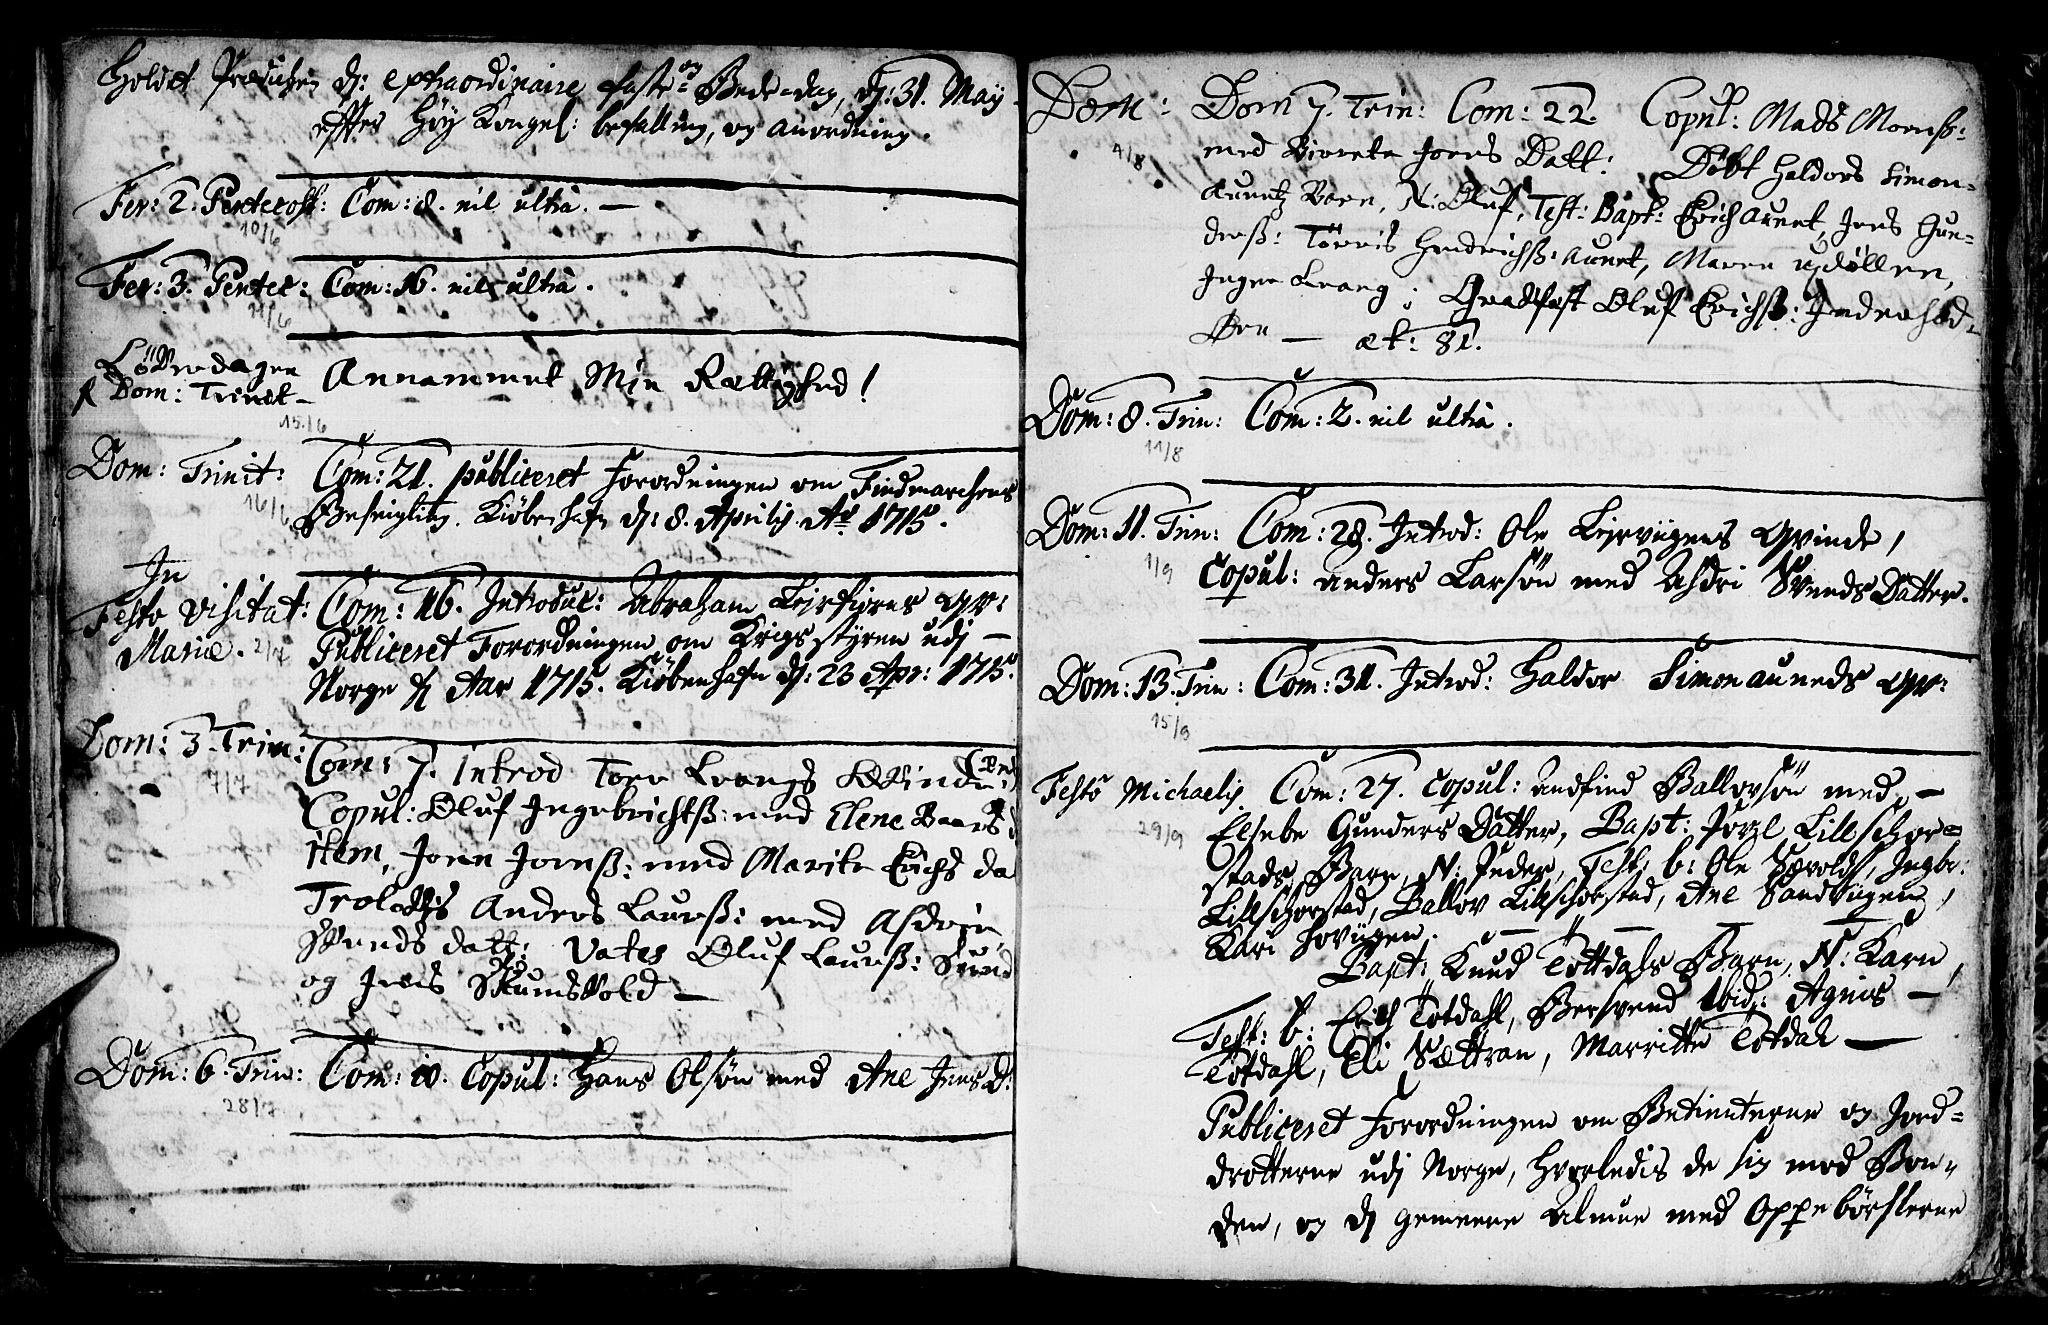 Holdet Prædichen dj: extraordinaire faste og Bede-dag, dj: 31. May
effter Høy Kongel: befalling, og anordning.
Fer: 2. Pentecost: Com: 8. nil ultrà. —
10/6
Fer: 3. Pentec: Com: 16. nil ultrà.
11/6
Löverdagen
Dom: Trinit — Annammet Min Rettighed!
15/6
Dom: Trinit: Com: 21. publiceret Forordningen om Findmarchens
16/6 Beseigling. Kiøbenhafn dj: 8. Aprilis Ao 1715.
In
Festo Visitat: Com: 16. Introduc: Abraham Leirfiøres qv:
Mariæ. 2/7 Publiceret Forordningen om Krigs styren udj —
Norge Aar 1715. Kiöbenhafn dj: 23 Apr: 1715.
Dom: 3. Trin: Com: 7. introd Tore Krangs Qvinde:
7/7
Copul: Oluf Ingebrichtß: med Elene Baards
Item, Joen Jonß: med Marite Erichs da
Trolov: Anders Laurß: med Asdrin
Svends datt: Vates Oluf Laurß:
og Jens Skumsvold —
Dom: 6. Trin: Com: 10. Copul: Hans Olsön med Ane Jens D:
28/7
Dom: Dom 7. Trin: Com: 22. Copul: Mads Monß:
4/8
med Joens Datt: Döbt Haldors Simon-
aunetz Barn, N: Oluf, Test: Bapt: Erich Aunet, Jens Gun-
derß: Törris Hendrichß: Aunet, Maren Updöllen,
Inger Krang; Gradfest Oluf Erichß:
— æt: 81.
Dom: 8. Trin: Com: 2. nil ultrà.
11/8
Dom: 11. Trin: Com: 28. Introd: Ole Leirviigens Qvinde,
1/9
Copul: Anders Larsön med Asdri Svends Datter.
Dom: 13. Trin: Com: 31. Introd: Haldor Simonauneds qv:
15/9
Festo Michaelis Com: 27. Copul: Andfind Ballovsön med —
29/9 Elsebe Gunders Datter, Bapt: Joel Lillschor-
stads Barn, N: Peder, Test: b: Ole Sævolds, Ingbr:
Lillschorstad, Ballov Lillschorstad, Ane Sandviigen,
Kari Hoviigen. — " — —
Bapt: Knud Tötdahls Barn, N: Karn,
Test: b: Erich Tötdahl, Bersvend ibid: Agnis —
Tötdahl, Eli Sættran, Marritte Tötdal —
Publiceret Forordningen om Betienterne og Jord-
drotterne udj Norge, hvorledis de sig med Bon-
den, og dj gemeene Almue med Oppebörslerne